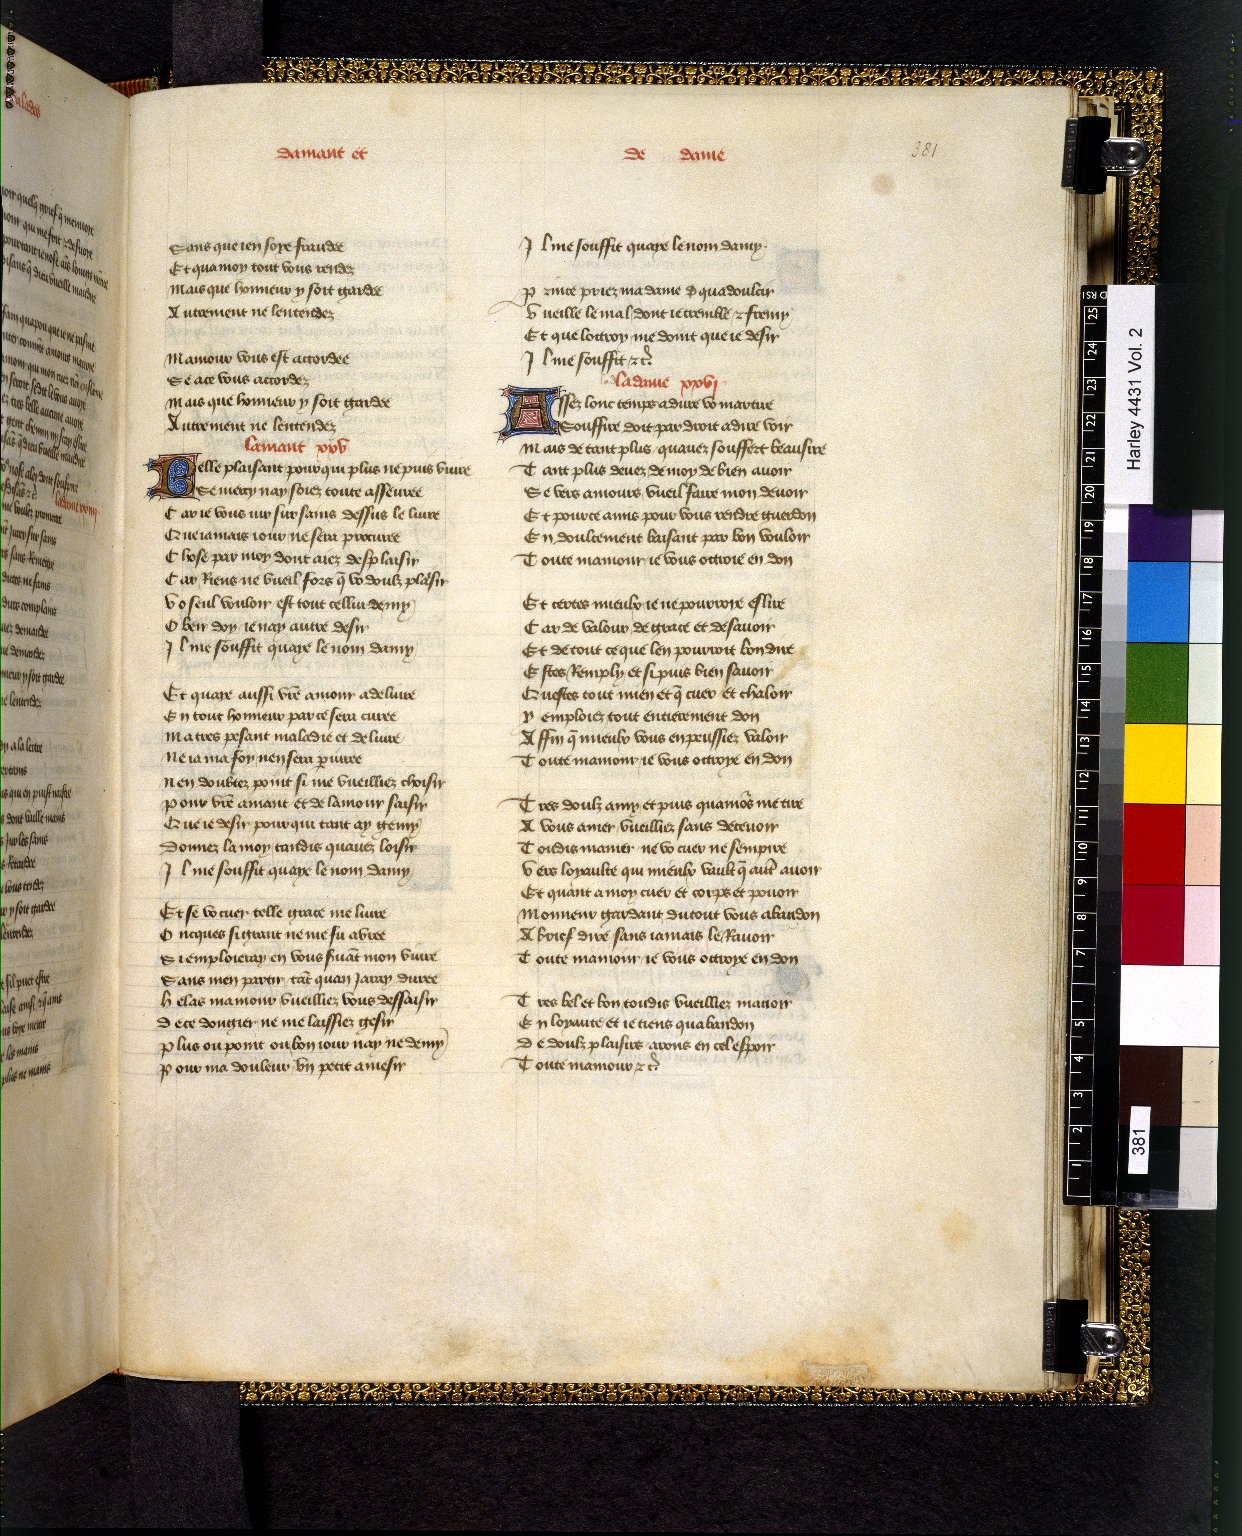 damant et
de dame
381
Sans que ien soye fraudee
Et qua moy tout vous rendez
Mais que honneur y soit gardee
Autrement ne lentendez
Mamour vous est accordee
Se a ce vous accordez
Mais que honneur y soit gardee
Autrement ne lentendez
Lamant xxv
Belle plaisant pour qui plus ne puis vivre
Se mercy nay soiez toute asseuree
Car ie vous iur sur sains dessus le livre
Que iamais iour ne sera procuree
Chose par moy dont aiez desplaisir
Car Riens ne vueil fors q̄ vo doulz plaisir
Vo seul vouloir est tout cellui de my
Obeir doy ie nay autre desir
Il me souffit quaye le nom damy
Et quaye aussi vr̄e amour a delivre
En tout honneur par ce sera curee
Ma tres pesant maladie et delivre
Ne ia ma foy nen sera p̱iuree
Nen doubtez point si me vueilliez choisir
Pour vr̄e amant et de lamour saisir
Que ie desir pour qui tant ay gemy
Donnez la moy tandis quavez loisir
Il me souffit quaye le nom damy
Et se vo cuer telle grace me livre
Oncques si grant ne me fu avree
Si emploieray en vous s̾uāt mon vivre
Sans men partir tāt quan Jaray duree
Helas mamour vueilliez vous dessaisir
De ce dongier ne me laissiez gesir
Plus ou point ou bon iour nay ne demy
Pour ma douleur un petit amesir
Il me souffit quaye le nom damy
Prince priez ma dame q̄ qua doulcir
Vueille le mal dont ie tremble ⁊ fremy
Et que lottroy me doint que ie desir
Il me souffit ⁊c̄
La dame xxvi
Assez lonc temps a dure vo martire
Souffire doit par droit a dire voir
Mais de tant plus quavez souffert beau sire
Tant plus devez de moy de bien avoir
Se vers amours vueil faire mon devoir
Et pour ce amis pour vous rendre guerdon
En doulcement baisant par bon vouloir
Toute mamour ie vous ottroie en don
Et certes mieulx ie ne pourroye eslire
Car de valour de grace et de savoir
Et de tout ce que len pourroit bon dire
Estes Remply et si puis bien savoir
Questes tout mien et q̄ cuer et chaloir
Y emploiez tout entierement don
Affin q̄ mieulx vous en peussiez valoir
Toute mamour ie vous ottroye en don
Tres doulz amy et puis quamōs me tire
A vous amer vueilliez sans decevoir
Toudis mamer ne vo cuer ne sempire
Vers loyaulte qui mieulx vault q̄ autr̄ avoir
Et quant a moy cuer et corps et povoir
Monneur gardant du tout vous abandon
A brief dire sans iamais le Ravoir
Toute mamour ie vous ottroye en don
Tres bel et bon toudis vueilliez manoir
En loyaute et ie tiens qua bandon
De doulz plaisirs arons en cel espoir
Toute mamour ⁊c̄
Harley 4431 Vol. 2
381